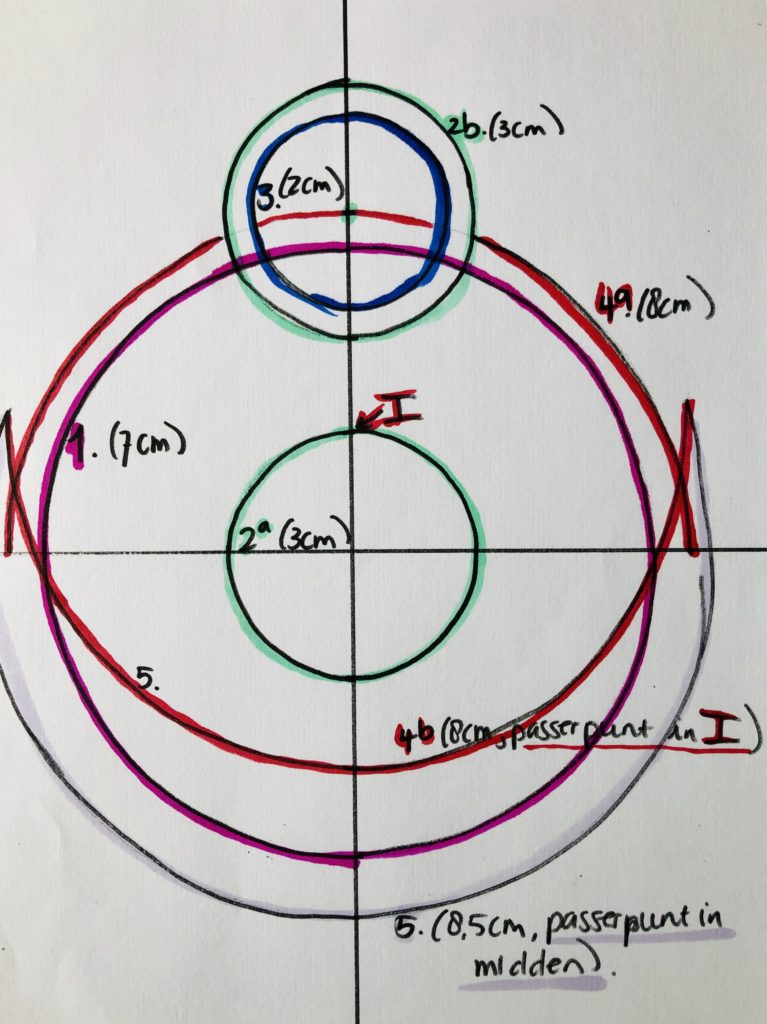 2b. (3cm)
3. (2cm)
4a. (8cm)
I
1. (7cm)
2a (3cm)
5.
4b (8cm, passerpunt in I)
5. (8,5cm, passerpunt in
midden).